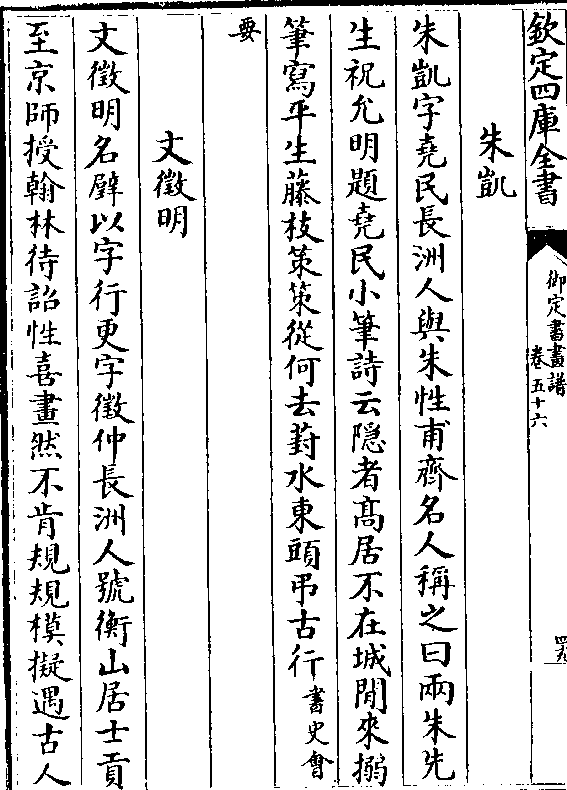 欽定四庫全書
御定書畫譜
卷五十六
朱凱
朱凱字堯民長洲人與朱性甫齊名人稱之曰兩朱先
生祝允明題堯民小筆詩云隐者髙居不在城閒來搦
筆寫平生藤枝策策從何去葑水東頭弔古行書史會
要
文徵明
文徵明名璧以字行更字徵仲長洲人號衡山居士貢
至京師授翰林待詔性喜畫然不肯規規模擬遇古人